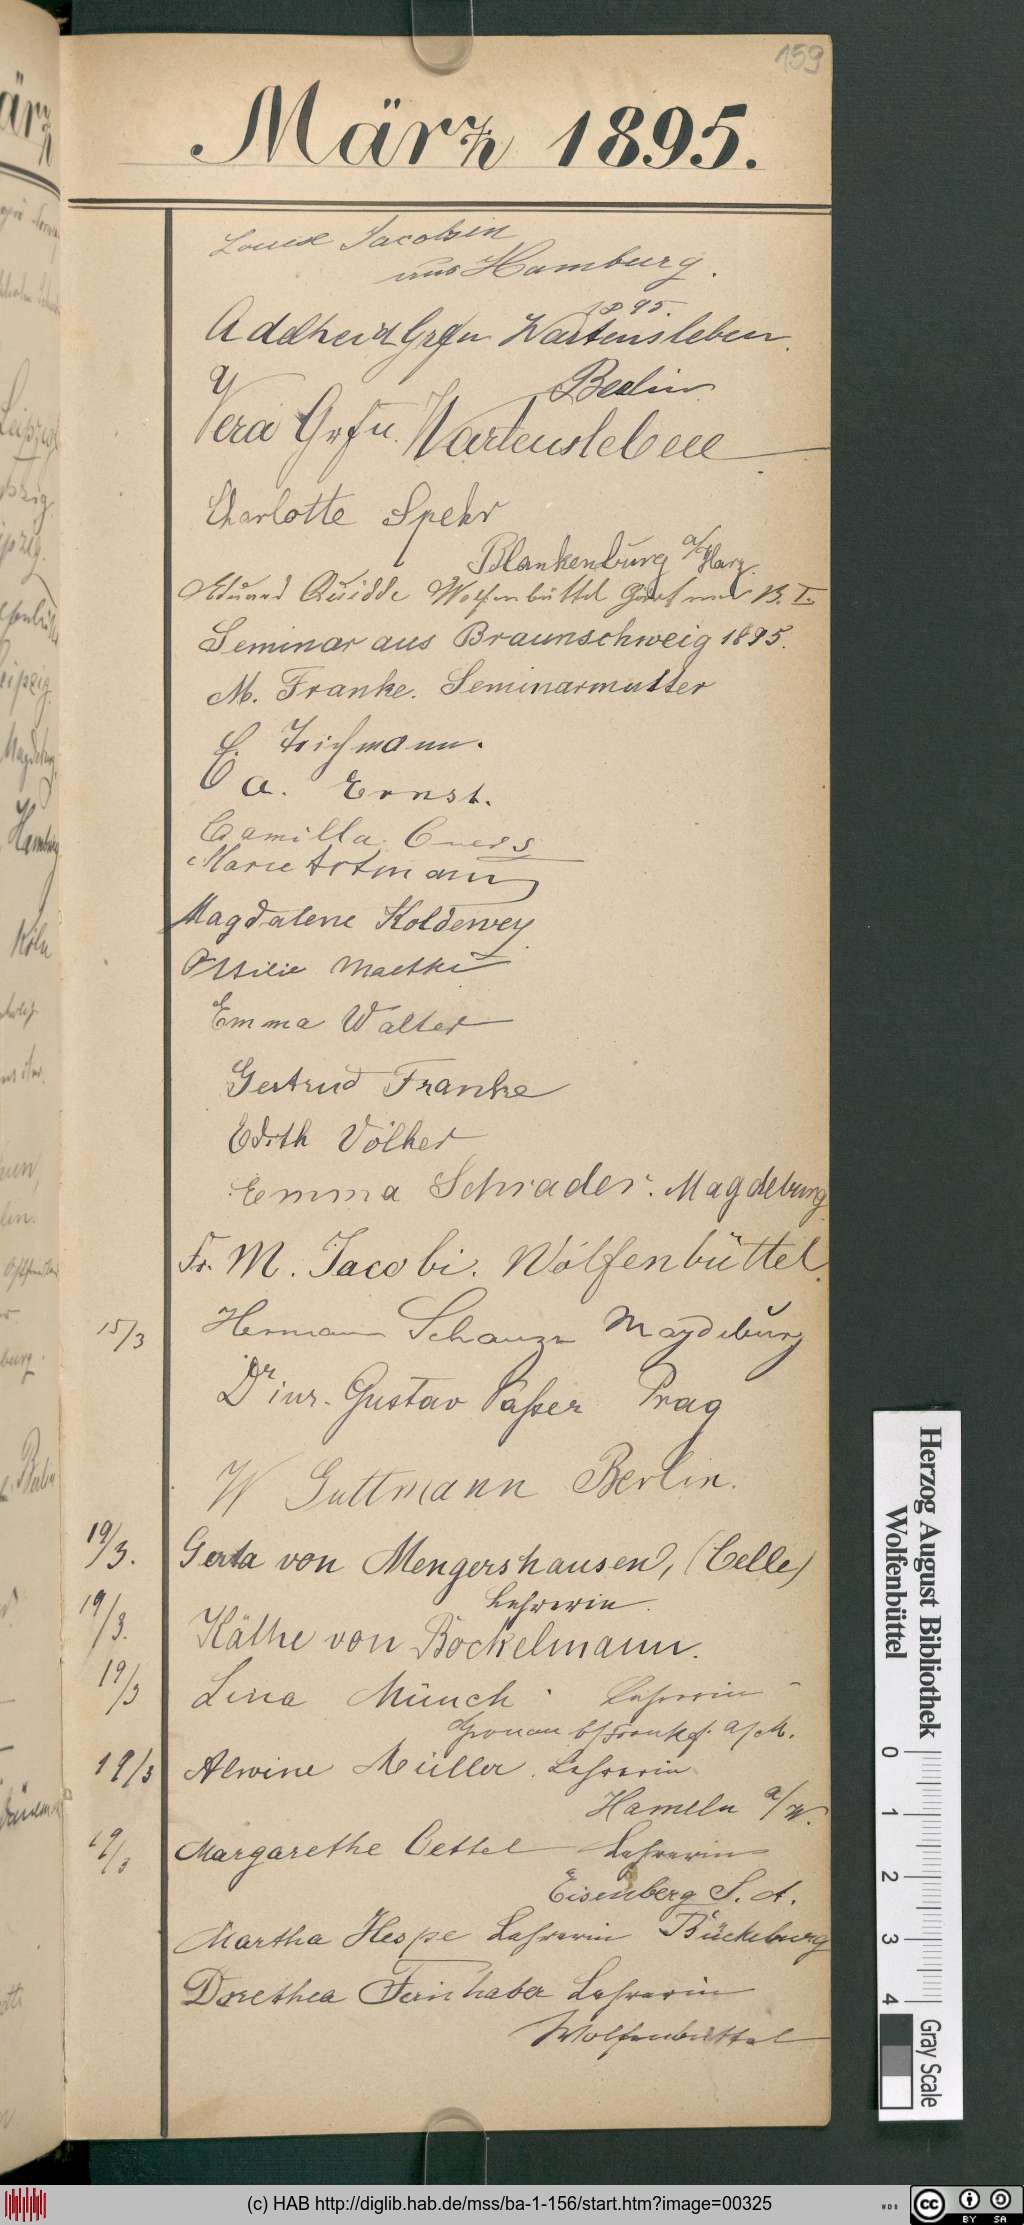 159
März 1895.
Louise Jacobsen
aus Hamburg.
1895.
Adelheid Grfn Wartensleben.
Berlin
Vera Grfn. Wartensleben
Charlotte Spehr
Blankenburg a/Harz.
Eduard Quidde Wolfenbüttel
Seminar aus Braunschweig 1895.
M. Franke. Seminarmutter
E.
a. Ernst.
Camilla
Marie Artmann
Magdalene Koldewey
Ottilie
Emma Walter
Gertrud Franke
Edith Völker
Emma Schrader. Magdeburg
Fr. M. Jacobi. Wolfenbüttel.
15/3 Hermann Magdeburg
Dr iur. Gustav Prag
W Guttmann Berlin.
19/3. Gerta von Mengershausen, (Celle)
Lehrerin.
19/3. Käthe von Bockelmann.
19/3 Lina Münch Lehrerin
Gronau b/Frankf. a/M.
19/3 Alwine Müller. Lehrerin
Hameln a/W.
19/3 Margarethe Oettel Lehrerin
Eisenberg S. A.
Martha Hespe Lehrerin Bückeburg
Dorethea Feinhaber Lehrerin
Wolfenbüttel
Köln
Herzog August Bibliothek
Wolfenbüttel
0 1 2 3 4
Gray Scale
(c) HAB http://diglib.hab.de/mss/ba-1-156/start.htm?image=00325
WDB
cc BY SA